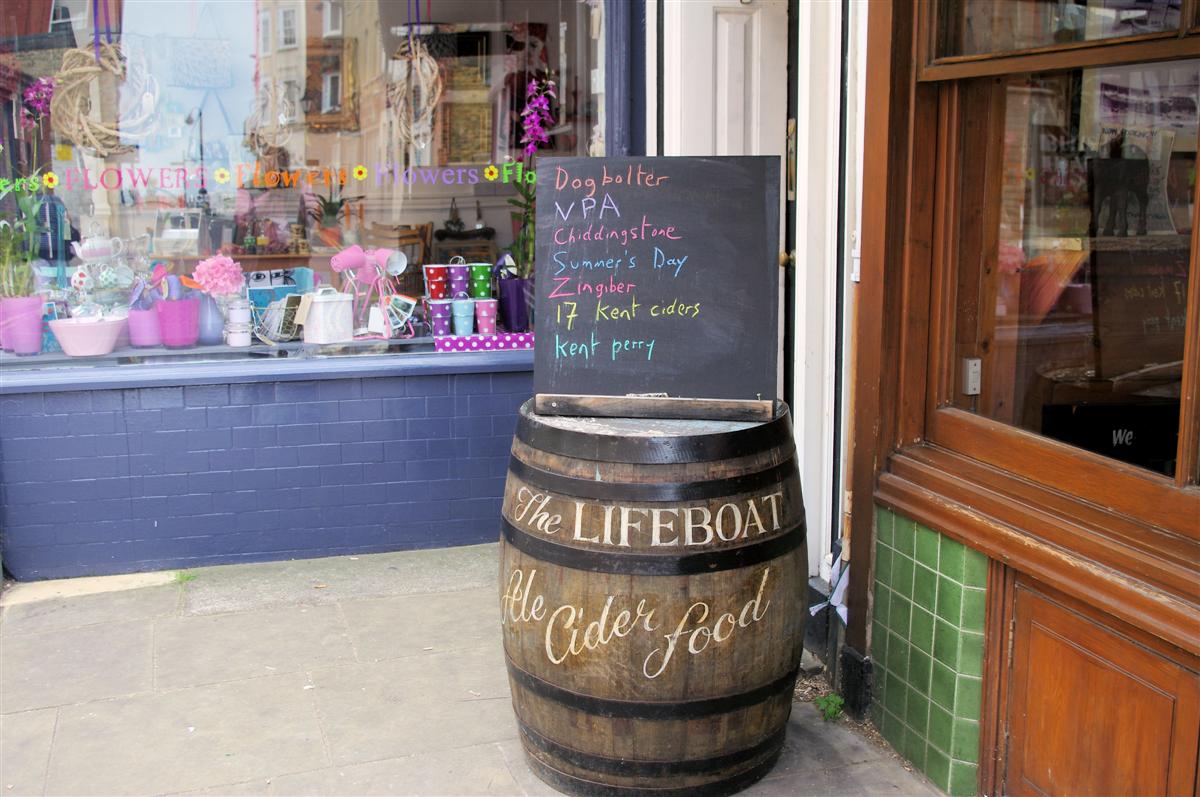 ens FLOWERS Flowers Flowers Flo
Dogbolter
VPA
Chiddingstone
Summer's Day
Zingiber
17 Kent ciders
Kent perry
The LIFEBOAT
Ale Cider food
We